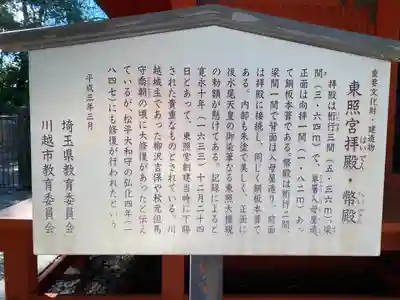 重要文化財・建造物
東照宮拝殿・幣殿
はいでん
へいでん
拝殿は桁行三間(五・三六m)、梁
間(三・六四m)で、単層入母屋造、
正面は向拝一間(一・八二m)あっ
て銅板本葺である。幣殿は桁行二間、
梁間一間で背面は入母屋造り、前面
は拝殿に接続し、同じく銅板本葺で
ある。内部も朱塗で美しく、正面に
後水尾天皇の御染筆なる東照大権現
の勅額が懸けてある。記録によると
寛永十年(一六三三)十二月二十四
日とあって、東照宮創建当時に下賜
された貴重なものとされている。川
越城主であった柳沢吉保や秋元但馬
守喬朝の頃に大修復があったと伝え
ているが、松平大和守の弘化四年(一
八四七)にも修復が行われたという
平成三年三月
埼玉県教育委員会
川越市教育委員会